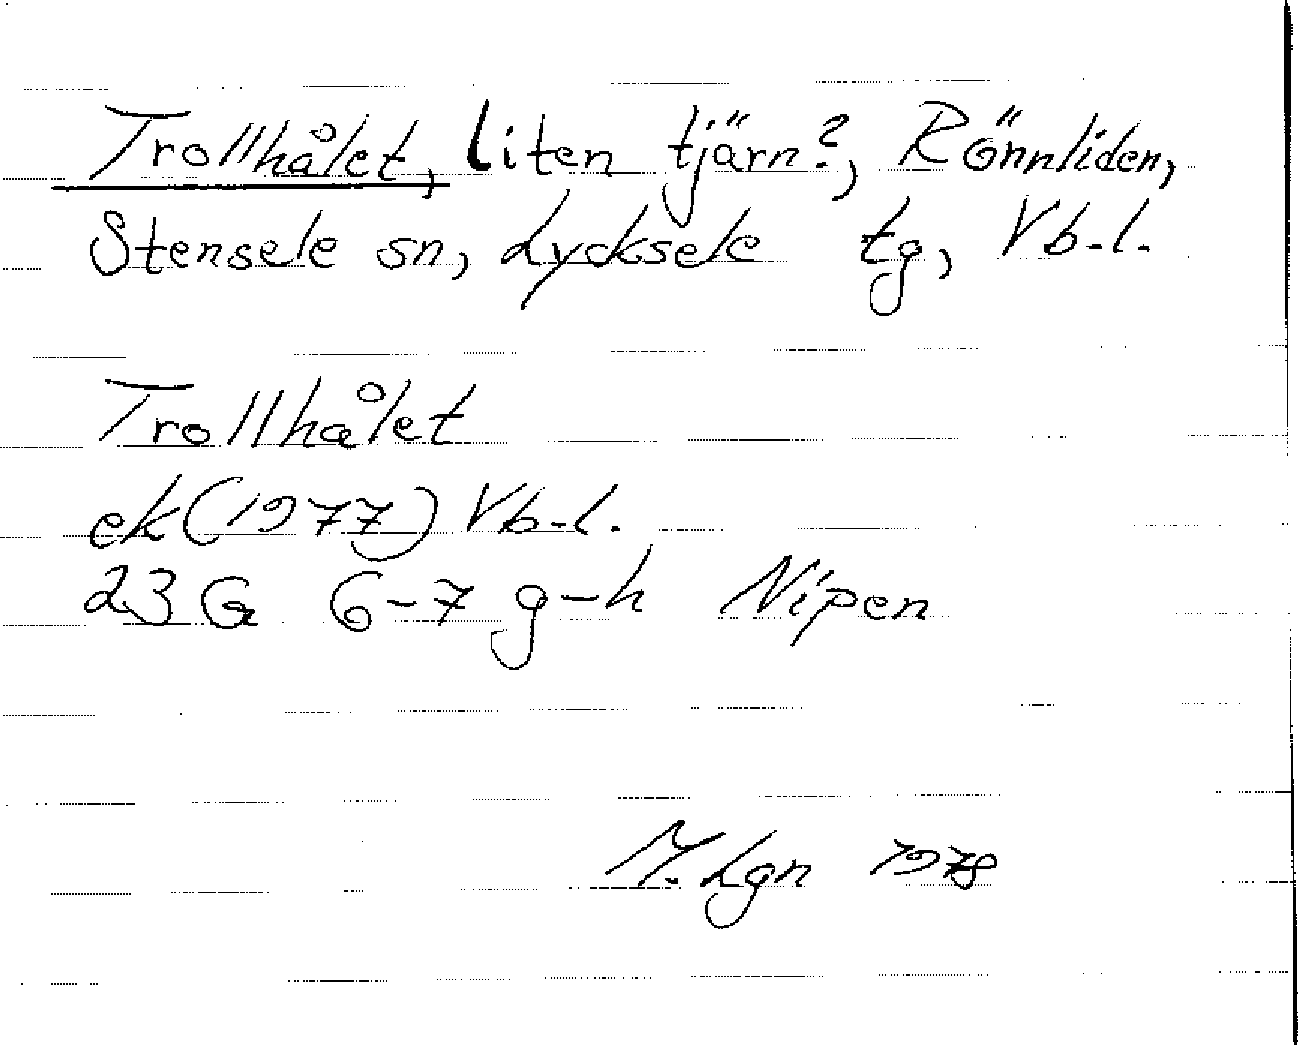 Trollhålet, liten tjärn?, Rönnliden,
Stensele sn, Lycksele tg, Vb-l.
Trollhålet
ek(1977) Vb-l.
23G 6-7 g-h Nipen
M. Lgn 1978